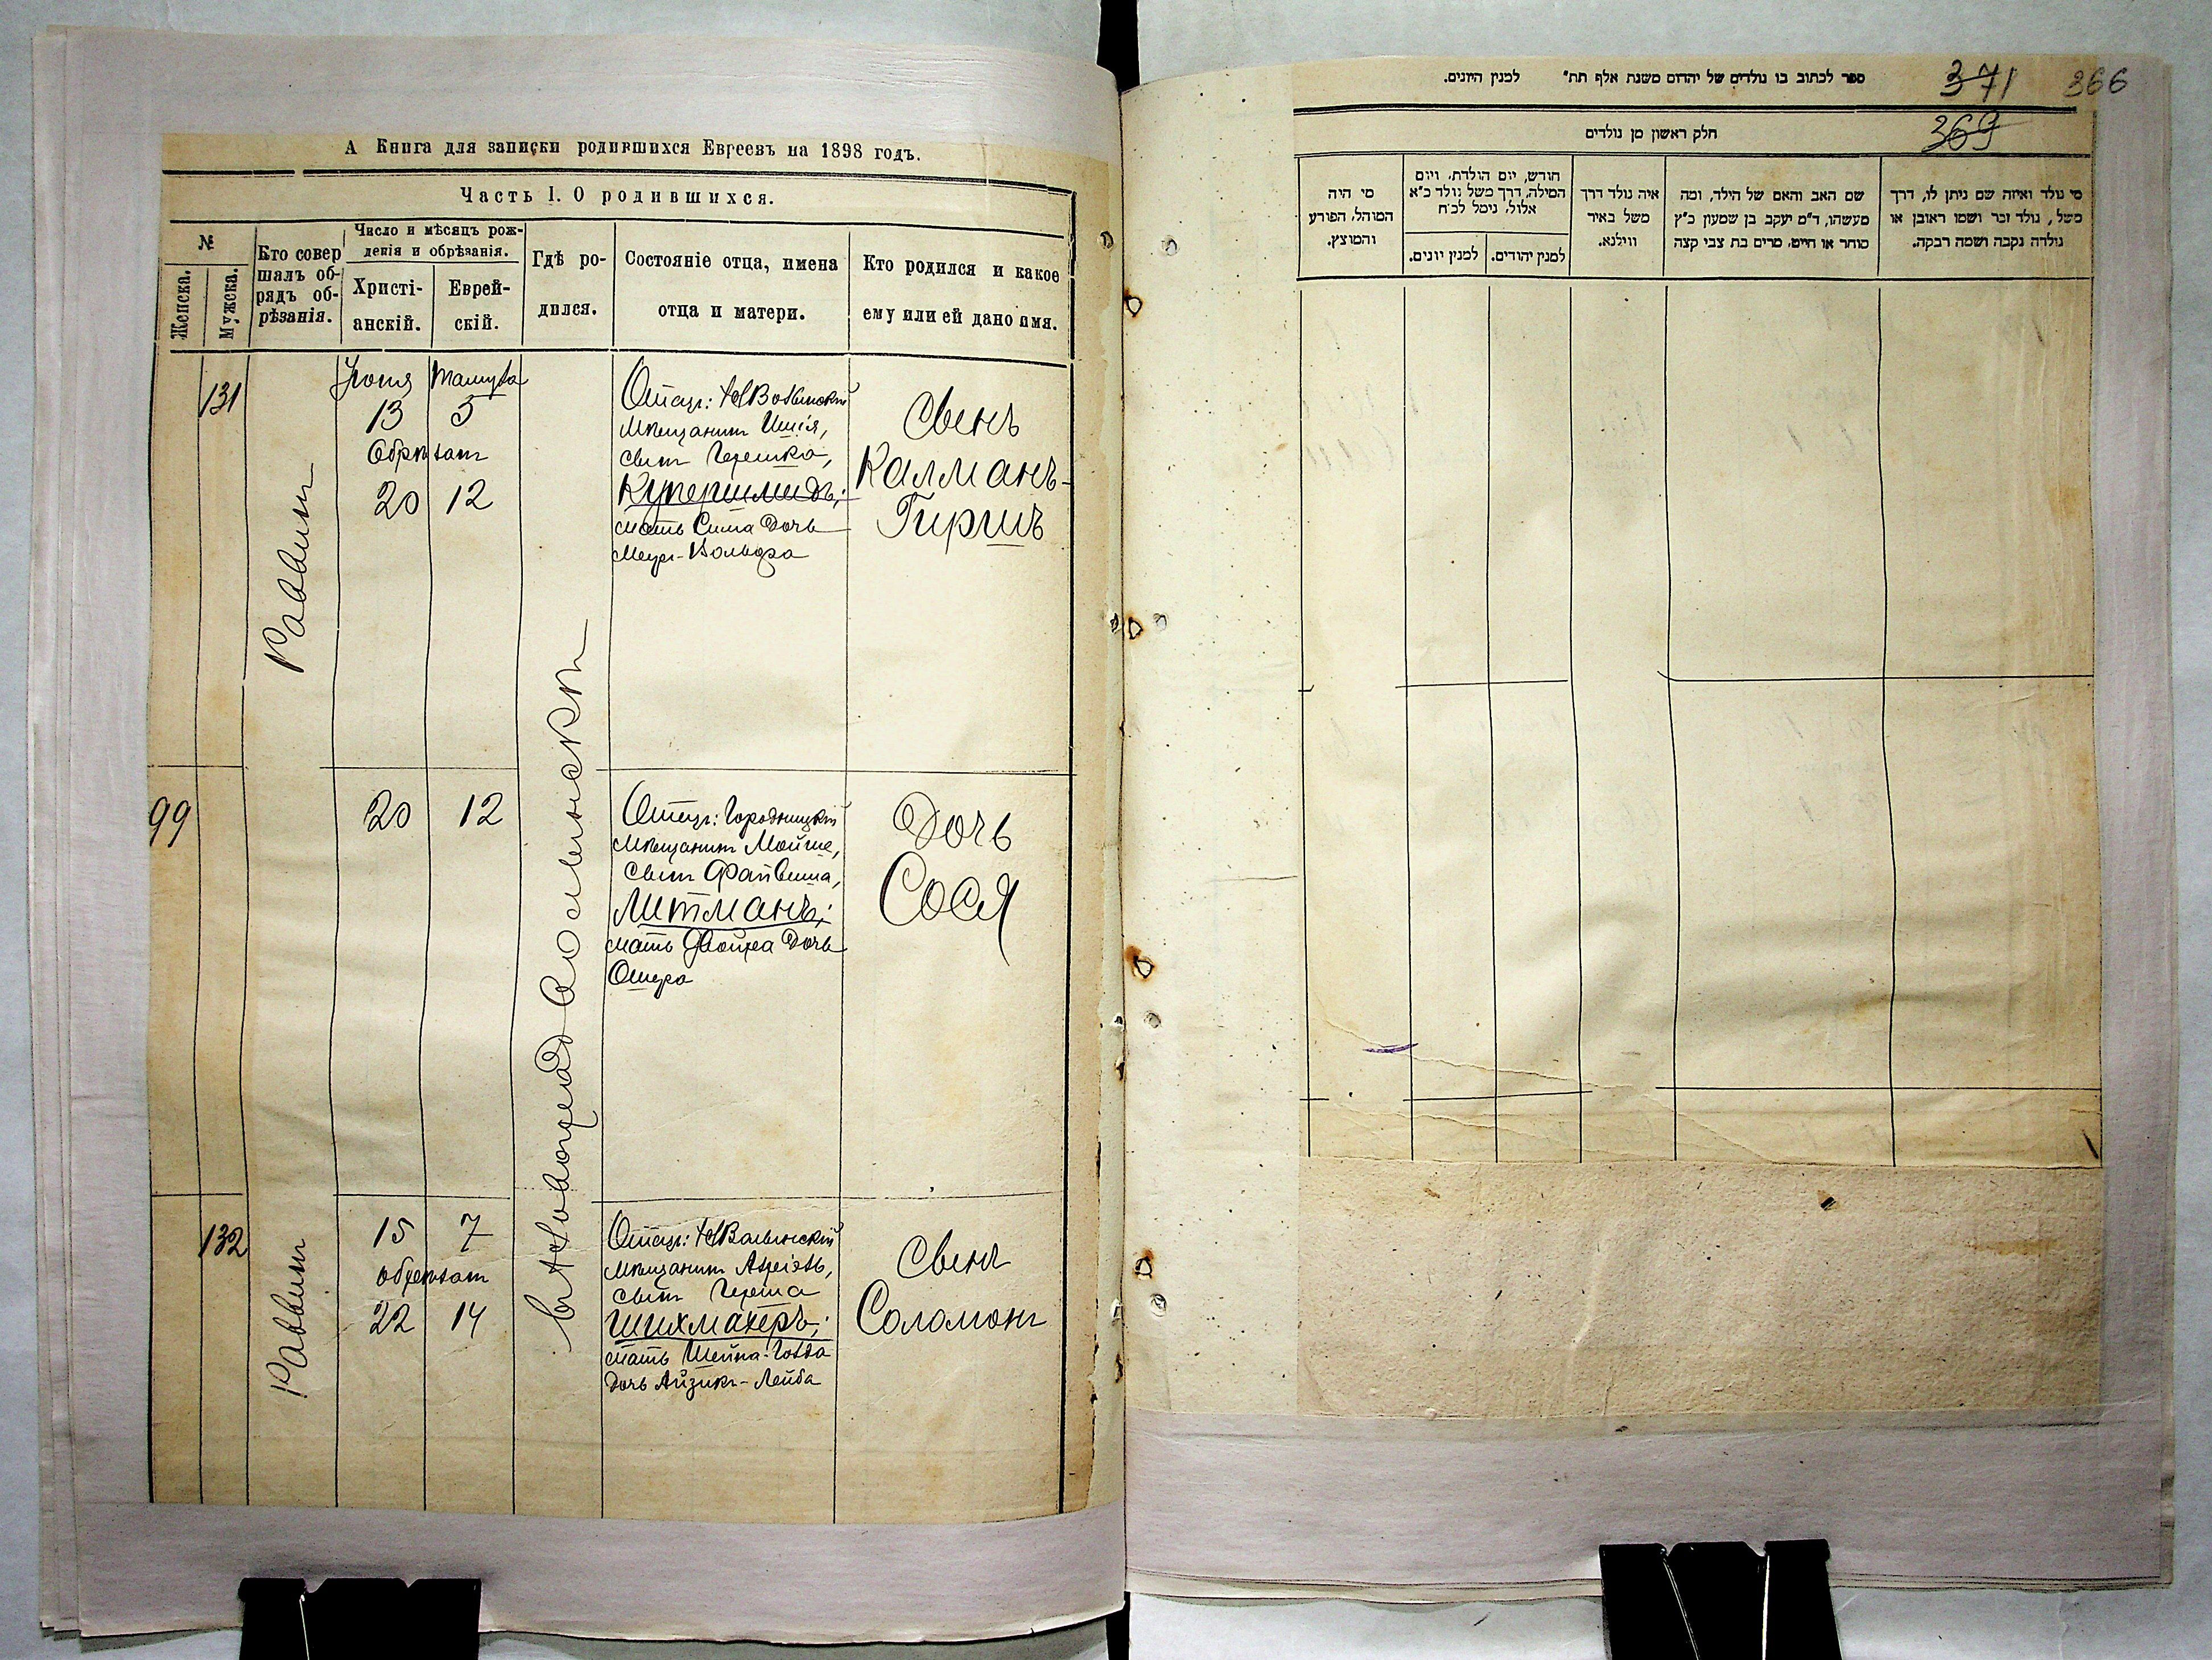 А Книга для записки родившихся Евреевъ на 1898 годъ.
Часть I. О родившихся.
№
Женска.
Мужска.
Кто совер
шалъ об-
рядъ об-
рѣзанія.
Число и мѣсяцъ рож-
денія и обрѣзанія.
Христі-
анскій.
Еврей-
скій.
Гдѣ ро-
дился.
Состояніе отца, имена
отца и матери.
Кто родился и какое
ему или ей дано имя.
131
Раввинъ
Іюня
13
Обрѣзанъ
20
Тамуза
5
12
Отецъ: НВолынскій
Мѣщанинъ
сынъ Гершка,
Купершмидъ;
мать Сима дочь
Меир-Вольфа
Сынъ
Калманъ-
Гиршъ
въ Новоградволынскѣ
99
20
12
Отецъ: Городницкій
Мѣщанинъ Мойше,
сынъ Файвиша,
Литманъ;
мать Двойра дочь
Ошера
Дочь
Сося
132
Раввинъ
15
7
обрѣзанъ
22
14
Отецъ: НВолынскій
Мѣщанинъ Азріэль,
сынъ Герша
Шихмахеръ;
мать Шейна-Голда
дочь Айзикъ-Лейба
Сынъ
Соломонъ
371
366
ספר לכתוב בו נולדים של יהדום משנת אלף תת״ למנין היונים.
369
חלק ראשון מן נולדים
מי נולד ואיזה שם ניתן לו, דרך
משל, נולד זכר ושמו ראובן או
נולדה נקבה ושמה רבקה.
שם האב והאם של הילד, ומה
מעשהו, ד״מ יעקב בן שמעון כ״ץ
סוחר או חייט, מרים בת צבי קצה
איה נולד דרך
משל באיר
ווילנא.
חודש, יום הולדת, ויום
המילה, דרך משל נולד כ״א
אלול, נימל לכ״ח
למנין יהודים.
למנין יונים.
מי היה
המוהל, הפורע
והמוצץ.